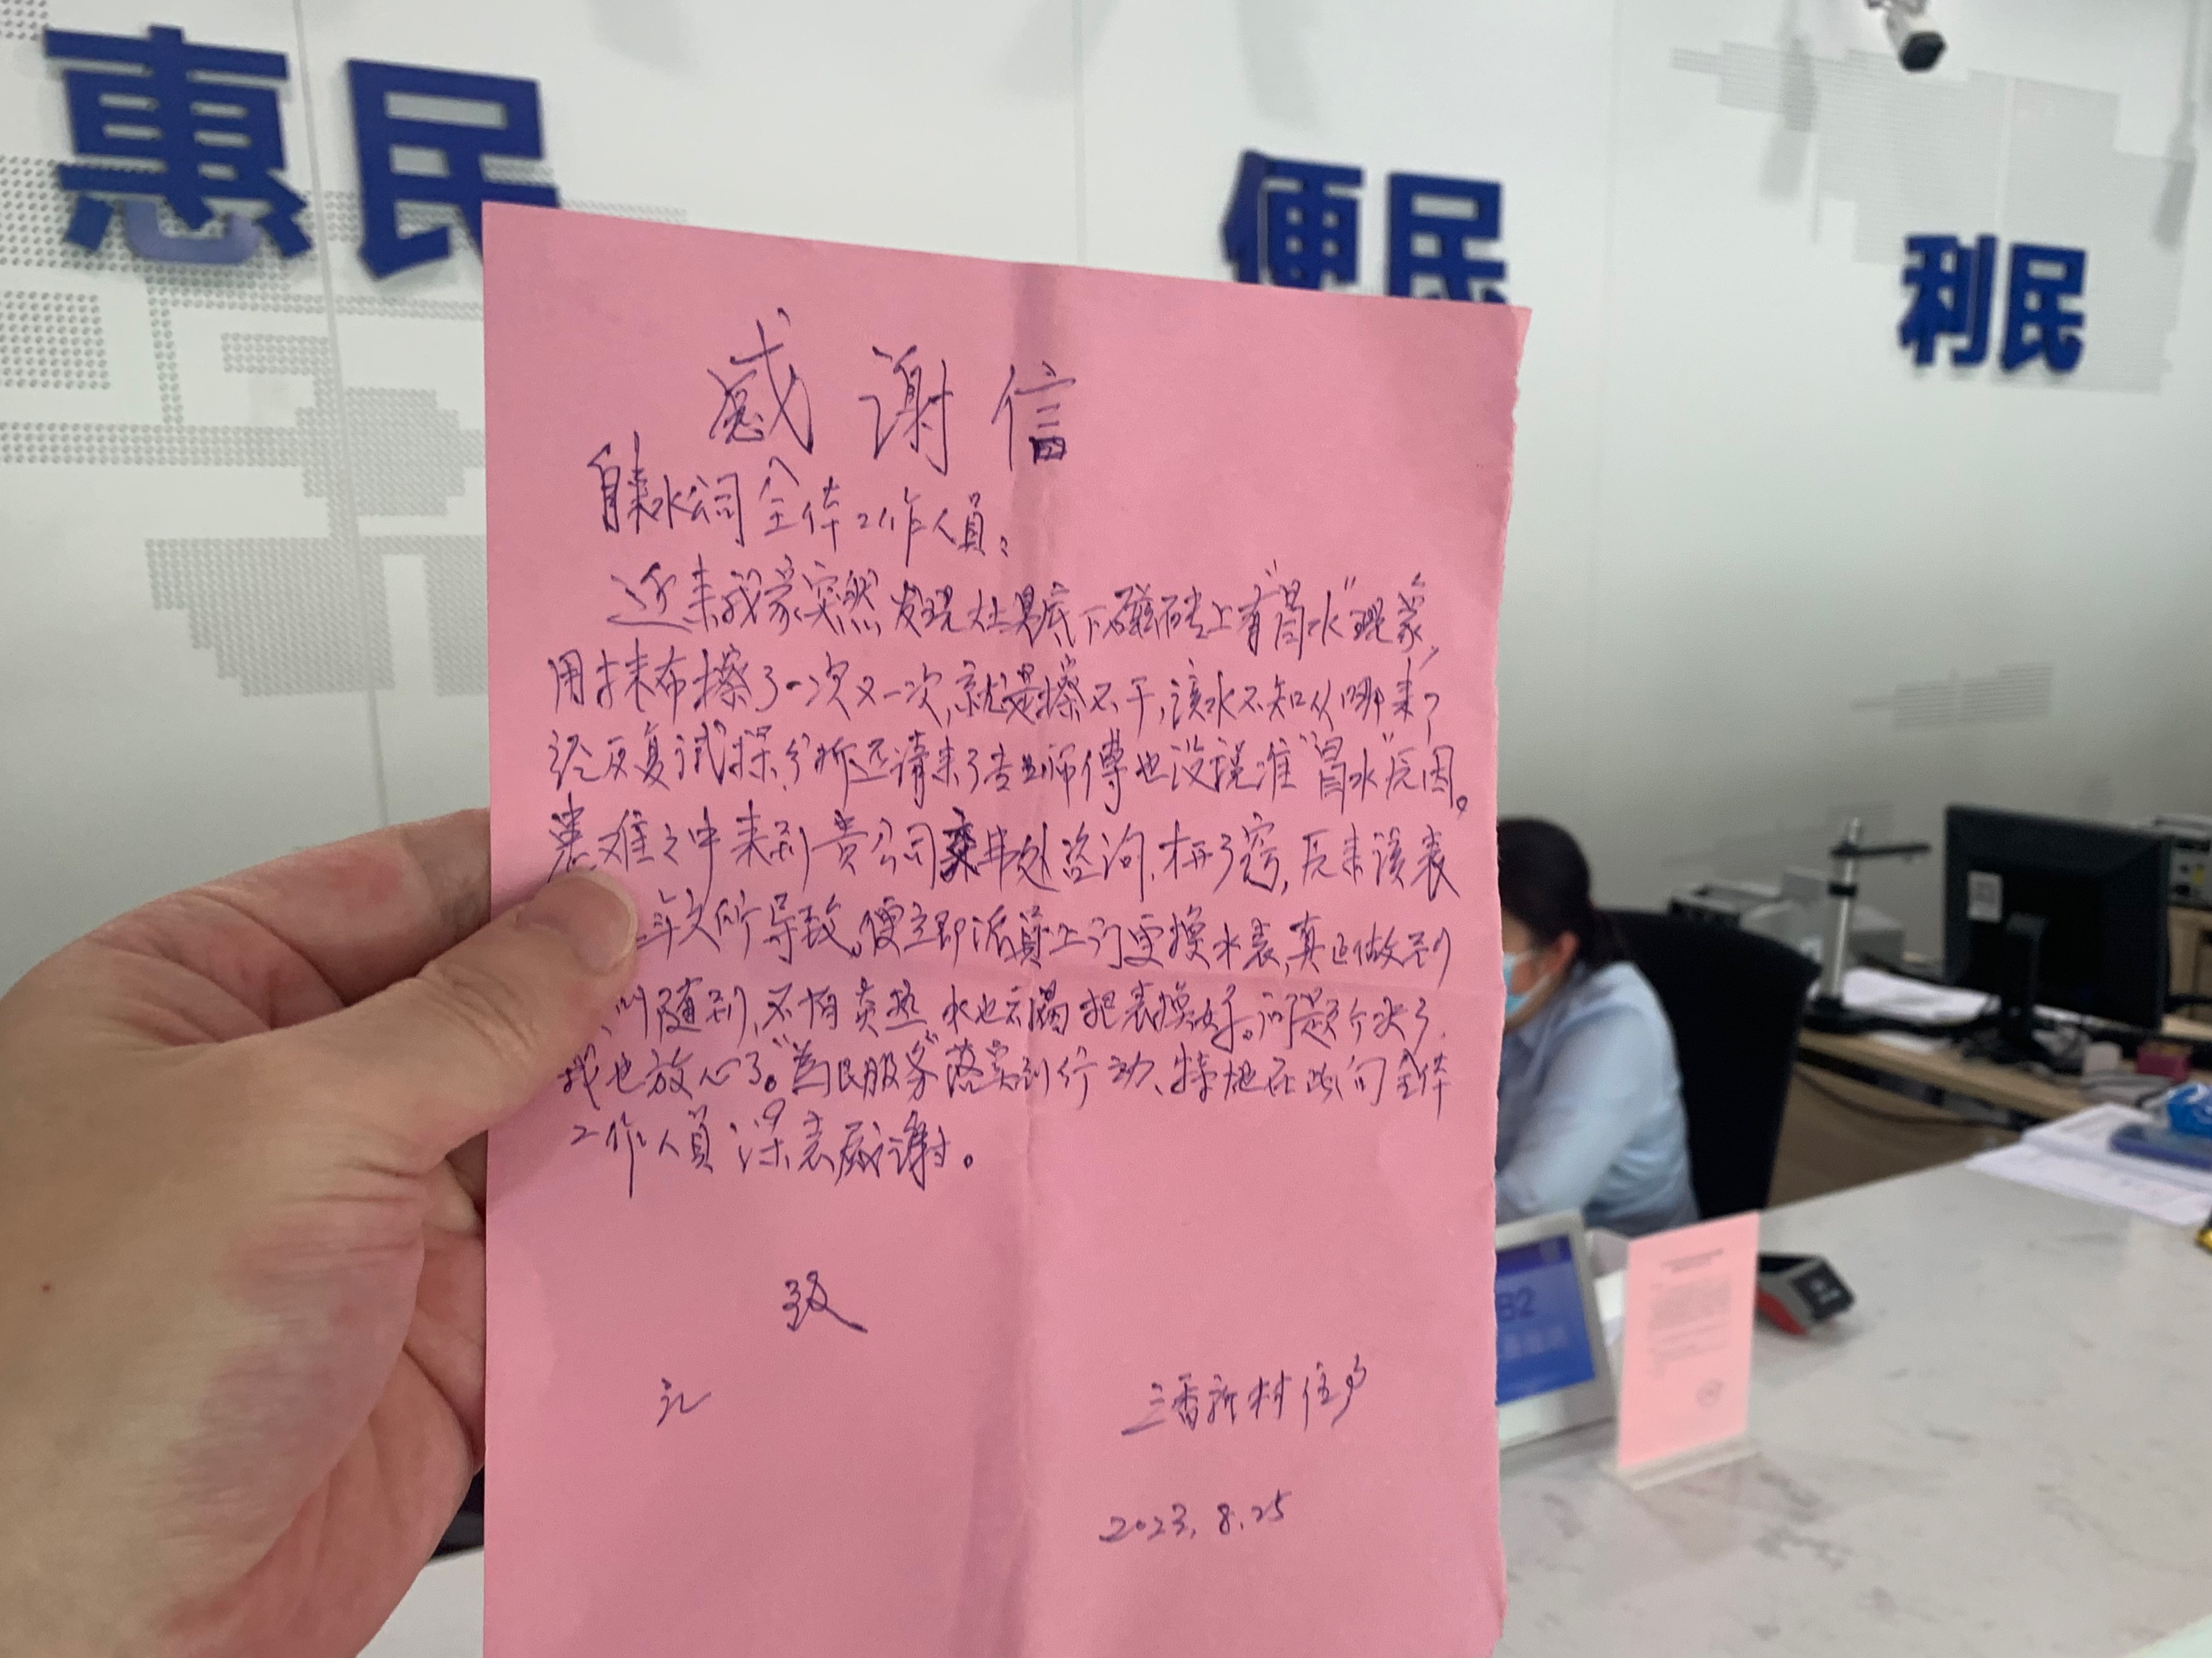 惠民
便民
利民
感谢信
自来水公司全体工作人员:
近来我家突然发现灶具底下磁砖上有"冒水"现象,
用抹布擦了一次又一次,就是擦不干,该水不知从哪来?
经反复试探,分析还请来了专业师傅也没说准"冒水"原因。
患难之中来到贵公司来此处咨询,才开了窍,原来该表
年久所导致。便立即派员上门更换水表,真正做到
叫随到,不怕炎热,水也不漏把表换好。问题介决了
我也放心了。"为民服务"落实到行动、特地在此向全体
工作人员深表感谢。
致
礼
三香新村住户
2023.8.25
B2